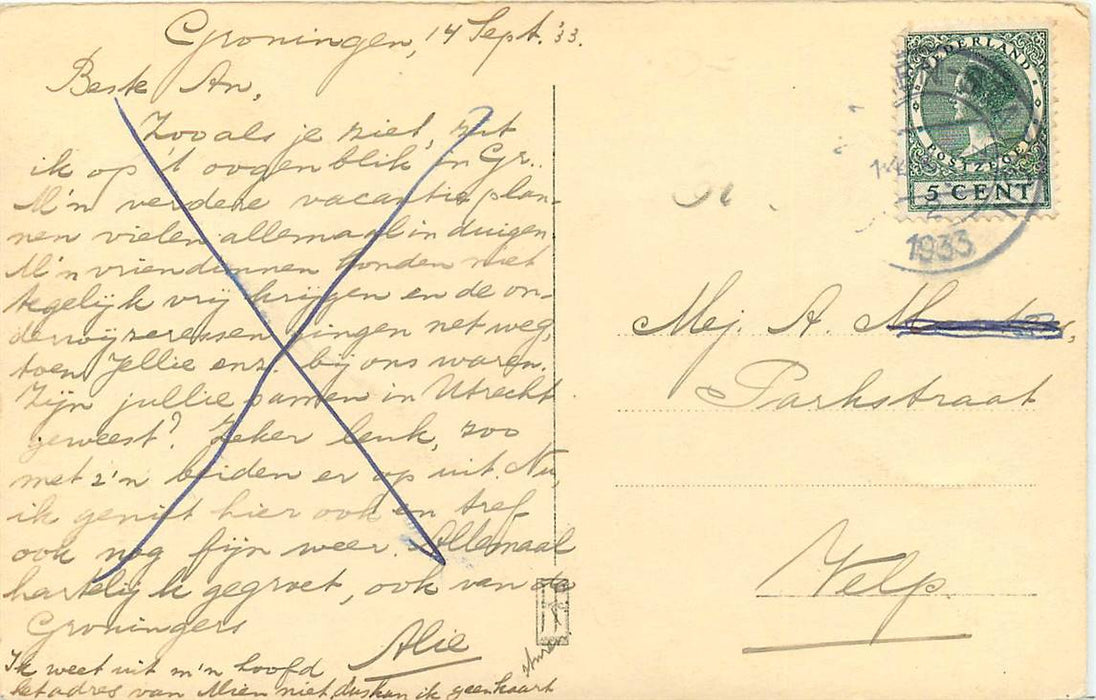 Groningen, 14 Sept. '33.
Beste An,
Zooals je ziet, zit
ik op 't oogenblik in Gr..
M'n verdere vacantie plan-
nen vielen allemaal in duigen.
M'n vriendinnen konden niet
tegelijk vrij krijgen en de on-
derwijzeressen gingen net weg,
toen Jellie enz. bij ons waren.
Zijn jullie samen in Utrecht
geweest? Zeker leuk, zoo
met z'n beiden er op uit. Nu,
ik geniet hier ook en tref
ook nog fijn weer. Allemaal
hartelijk gegroet, ook van de
Groningers
Alie
Ik weet uit m'n hoofd
het adres van Mien niet, dus kan ik geen kaart
sturen
NEDERLAND
POSTZEGEL
5 CENT
1933
Mej. A.
Parkstraat
Velp.